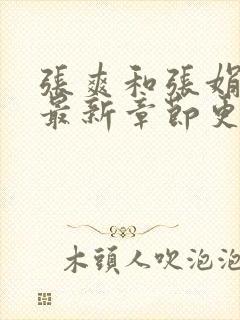 張爽和張娟
最新章節更
木頭人吹泡泡